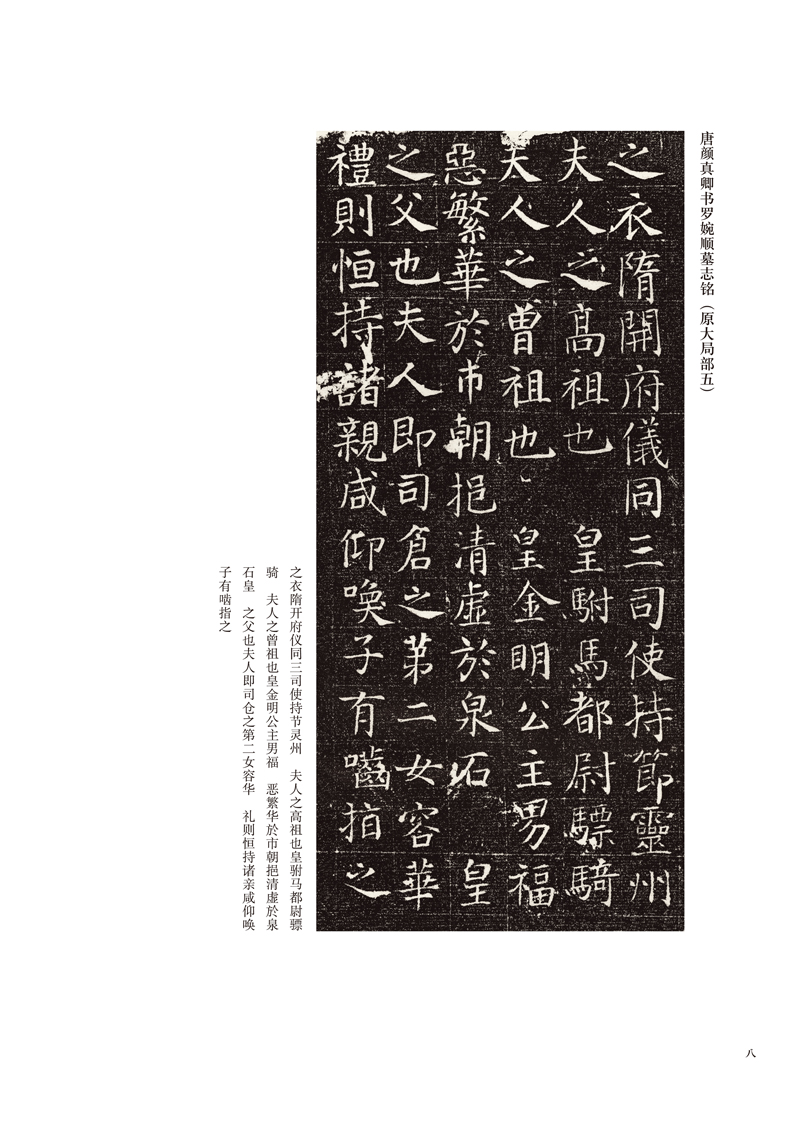 唐颜真卿书罗婉顺墓志铭（原大局部五）
之衣隋開府儀同三司使持節靈州
夫人之高祖也　皇駙馬都尉驃騎
夫人之曽祖也　皇金明公主男福
惡繁華於市朝挹清虛於泉石　皇
之父也夫人即司倉之第二女容華
禮則恒持諸親咸仰喚子有嚙指之
之衣隋开府仪同三司使持节灵州　夫人之高祖也皇驸马都尉骠
骑　夫人之曾祖也皇金明公主男福　恶繁华於市朝挹清虚於泉
石皇　之父也夫人即司仓之第二女容华　礼则恒持诸亲咸仰唤
子有啮指之
八